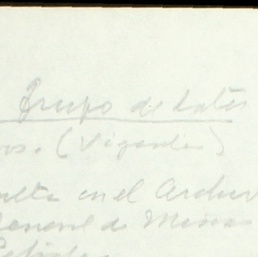 Grupo de datos
os. (Vigentes)
ulta en el Archiv
General de Minas